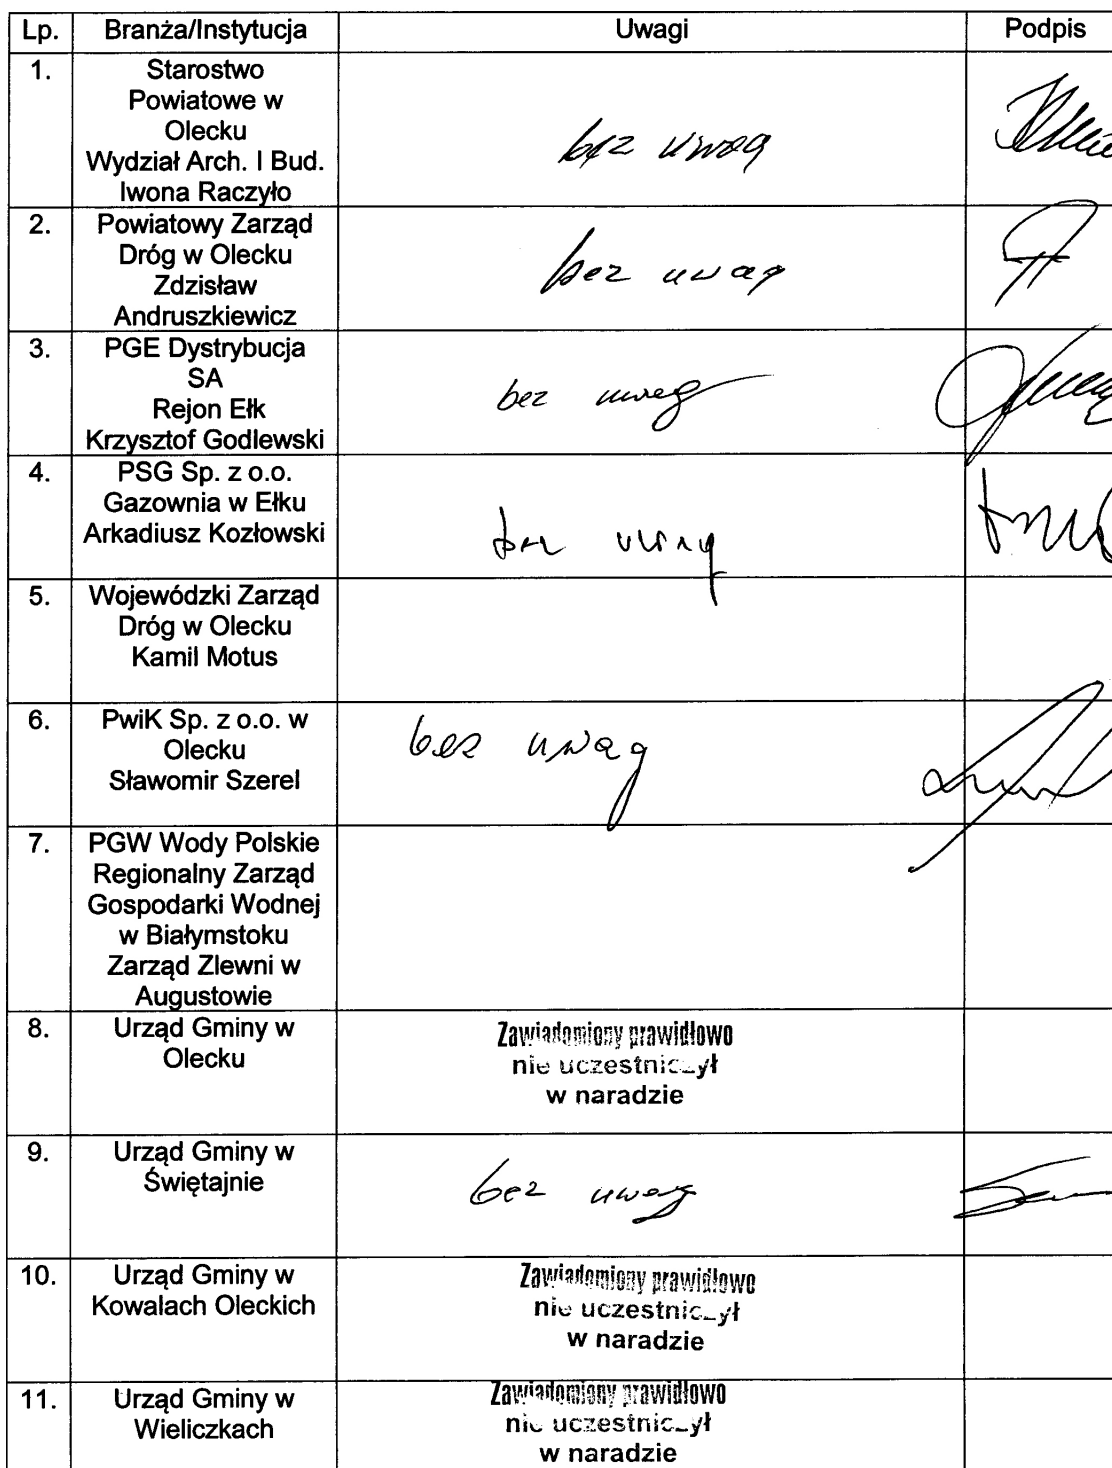 Lp. Branża/Instytucja Uwagi Podpis
1. Starostwo
Powiatowe w
Olecku
Wydział Arch. I Bud.
Iwona Raczyło
bez uwag
2. Powiatowy Zarząd
Dróg w Olecku
Zdzisław
Andruszkiewicz
bez uwag
3. PGE Dystrybucja
SA
Rejon Ełk
Krzysztof Godlewski
bez uwag
4. PSG Sp. z o.o.
Gazownia w Ełku
Arkadiusz Kozłowski
bez uwag
5. Wojewódzki Zarząd
Dróg w Olecku
Kamil Motus
6. PwiK Sp. z o.o. w
Olecku
Sławomir Szerel
bez uwag
7. PGW Wody Polskie
Regionalny Zarząd
Gospodarki Wodnej
w Białymstoku
Zarząd Zlewni w
Augustowie
8. Urząd Gminy w
Olecku
Zawiadomiony prawidłowo
nie uczestniczył
w naradzie
9. Urząd Gminy w
Świętajnie
bez uwag
10. Urząd Gminy w
Kowalach Oleckich
Zawiadomiony prawidłowo
nie uczestniczył
w naradzie
11. Urząd Gminy w
Wieliczkach
Zawiadomiony prawidłowo
nie uczestniczył
w naradzie